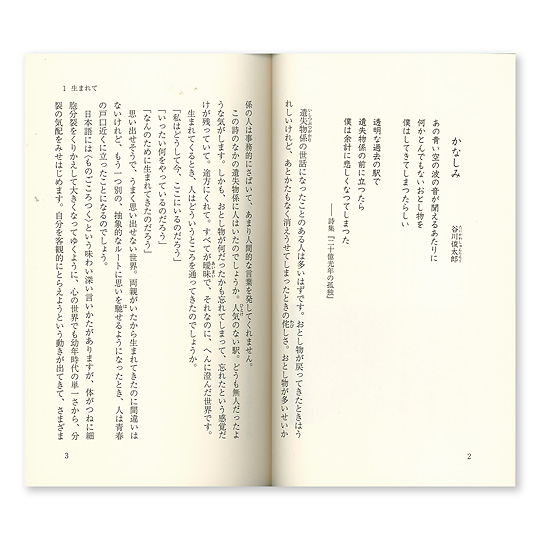 かなしみ
谷川俊太郎
あの青い空の波の音が聞えるあたりに
何かとんでもないおとし物を
僕はしてきてしまったらしい
透明な過去の駅で
遺失物係の前に立ったら
僕は余計に悲しくなってしまった
――詩集『二十億光年の孤独』
遺失物係の世話になったことのある人は多いはずです。おとし物が戻ってきたときはう
れしいけれど、あとかたもなく消えうせてしまったときの侘しさ。おとし物が多いせいか
2
1 生まれて
係の人は事務的にさばいて、あまり人間的な言葉を発してくれません。
この詩のなかの遺失物係に人はいたのでしょうか。人気のない駅。どうも無人だったよ
うな気がします。しかも、おとし物が何だったかも忘れてしまって、忘れたという感覚だ
けが残っていて。途方にくれて。すべてが曖昧で、それなのに、へんに澄んだ世界です。
生まれてくるとき、人はどういうところを通ってきたのでしょうか。
「私はどうして今、ここにいるのだろう」
「いったい何をやっているのだろう」
「なんのために生まれてきたのだろう」
思い出せそうで、うまく思い出せない世界。両親がいたから生まれてきたのに間違いは
ないけれど、もう一つ別の、抽象的なルートに思いを馳せるようになったとき、人は青春
の戸口近くに立ったことになるのでしょう。
日本語には〈ものごころつく〉という味わい深い言いかたがありますが、体がつねに細
胞分裂をくりかえして大きくなってゆくように、心の世界でも幼年時代の単一さから、分
裂の気配をみせはじめます。自分を客観的にとらえようという動きが出てきて、さまざま
3